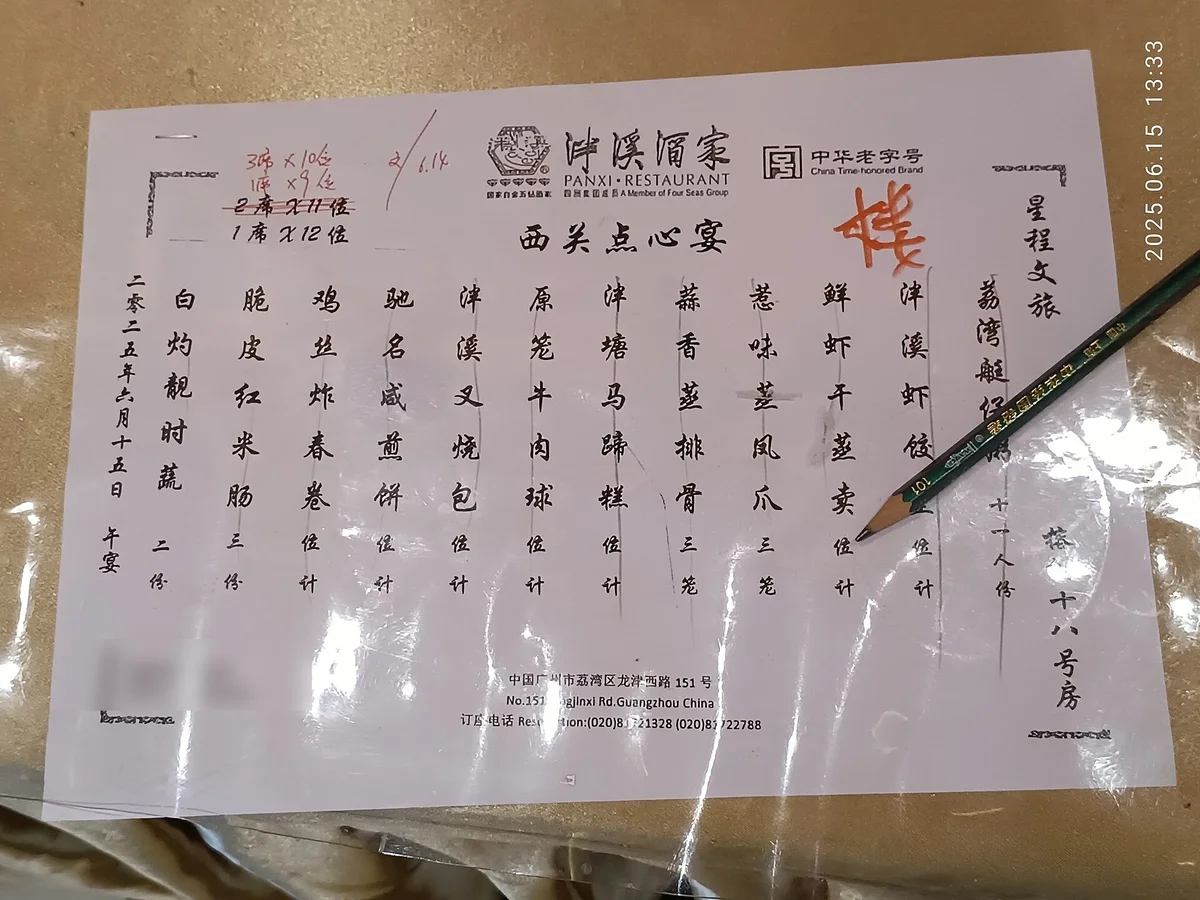 2025.06.15 13:33
3席×10位
1席×9位
2席×11位
1席×12位
6.14
泮溪酒家
PANXI·RESTAURANT
国家白金五钻酒家
四海集团成员 A Member of Four Seas Group
中华老字号
China Time-honored Brand
西关点心宴
星程文旅
十八号房
荔湾艇仔粥 十一人份
泮溪虾饺 位计
鲜虾干蒸卖 位计
惹味蒸凤爪 三笼
蒜香蒸排骨 三笼
泮塘马蹄糕 位计
原笼牛肉球 位计
泮溪叉烧包 位计
驰名咸煎饼 位计
鸡丝炸春卷 位计
脆皮红米肠 三份
白灼靓时蔬 二份
二零二五年六月十五日 午宴
中国广州市荔湾区龙津西路 151 号
No.151 Longjinxi Rd.Guangzhou China
订座电话 Reservation:(020)81721328 (020)81722788
中国
101